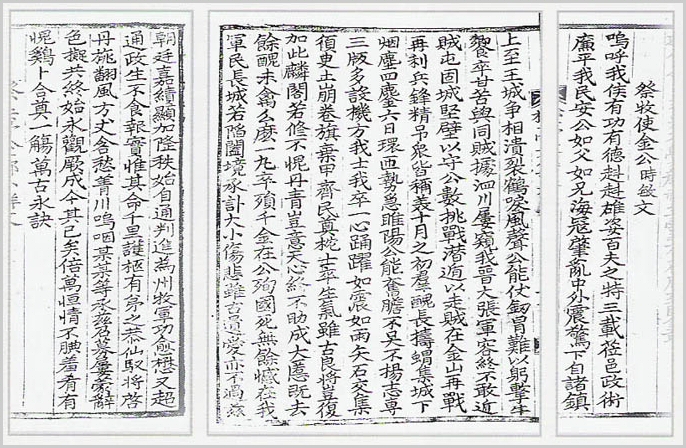 祭牧使金公時敏文
嗚呼我侯有功有德赳赳雄姿百夫之特三載莅邑政術
廉平我民安公如父如兄海寇肇亂中外震驚下自諸鎮
上至王城爭相潰裂鶴唳風聲公能伏釰冒難以躬擊牛
饗卒甘苦與同賊據泗川屢窺我晉大張軍容終不敢近
賊屯固城堅壁以守公數挑戰潛遁以走賊在金山再戰
再利兵鋒精吊衆皆稱義十月之初羣醜長擣蝟集城下
烟塵四塞六日環匝勢急睢陽公能奮膽不吳不揚志專
三版多設機方我士我卒一心踊躍如震如雨矢石交集
須臾土崩卷旗棄甲齊民奠枕士卒生氣雖古良將豈復
如此麟閣若修不愧丹青豈意天心終不助成大憝旣去
餘醜未禽幺麽一丸卒殞千金在公殉國死無餘憾在我
軍民長城若陷闔境承訃大小傷悲雖古遺愛亦不過玆
朝廷嘉績顯加隆秩始自通判進爲州牧軍功愈懋又超
通政生不食報嗇惟其命千里護柩有弟之恭仙馭將啓
丹旐翩風方丈含愁菁川嗚咽某某等承玆召募屢蒙辭
色擬共終始永觀厥成今其已矣倍萬恒情不腆羞肴有
愧鷄卜合奠一觴萬古永訣